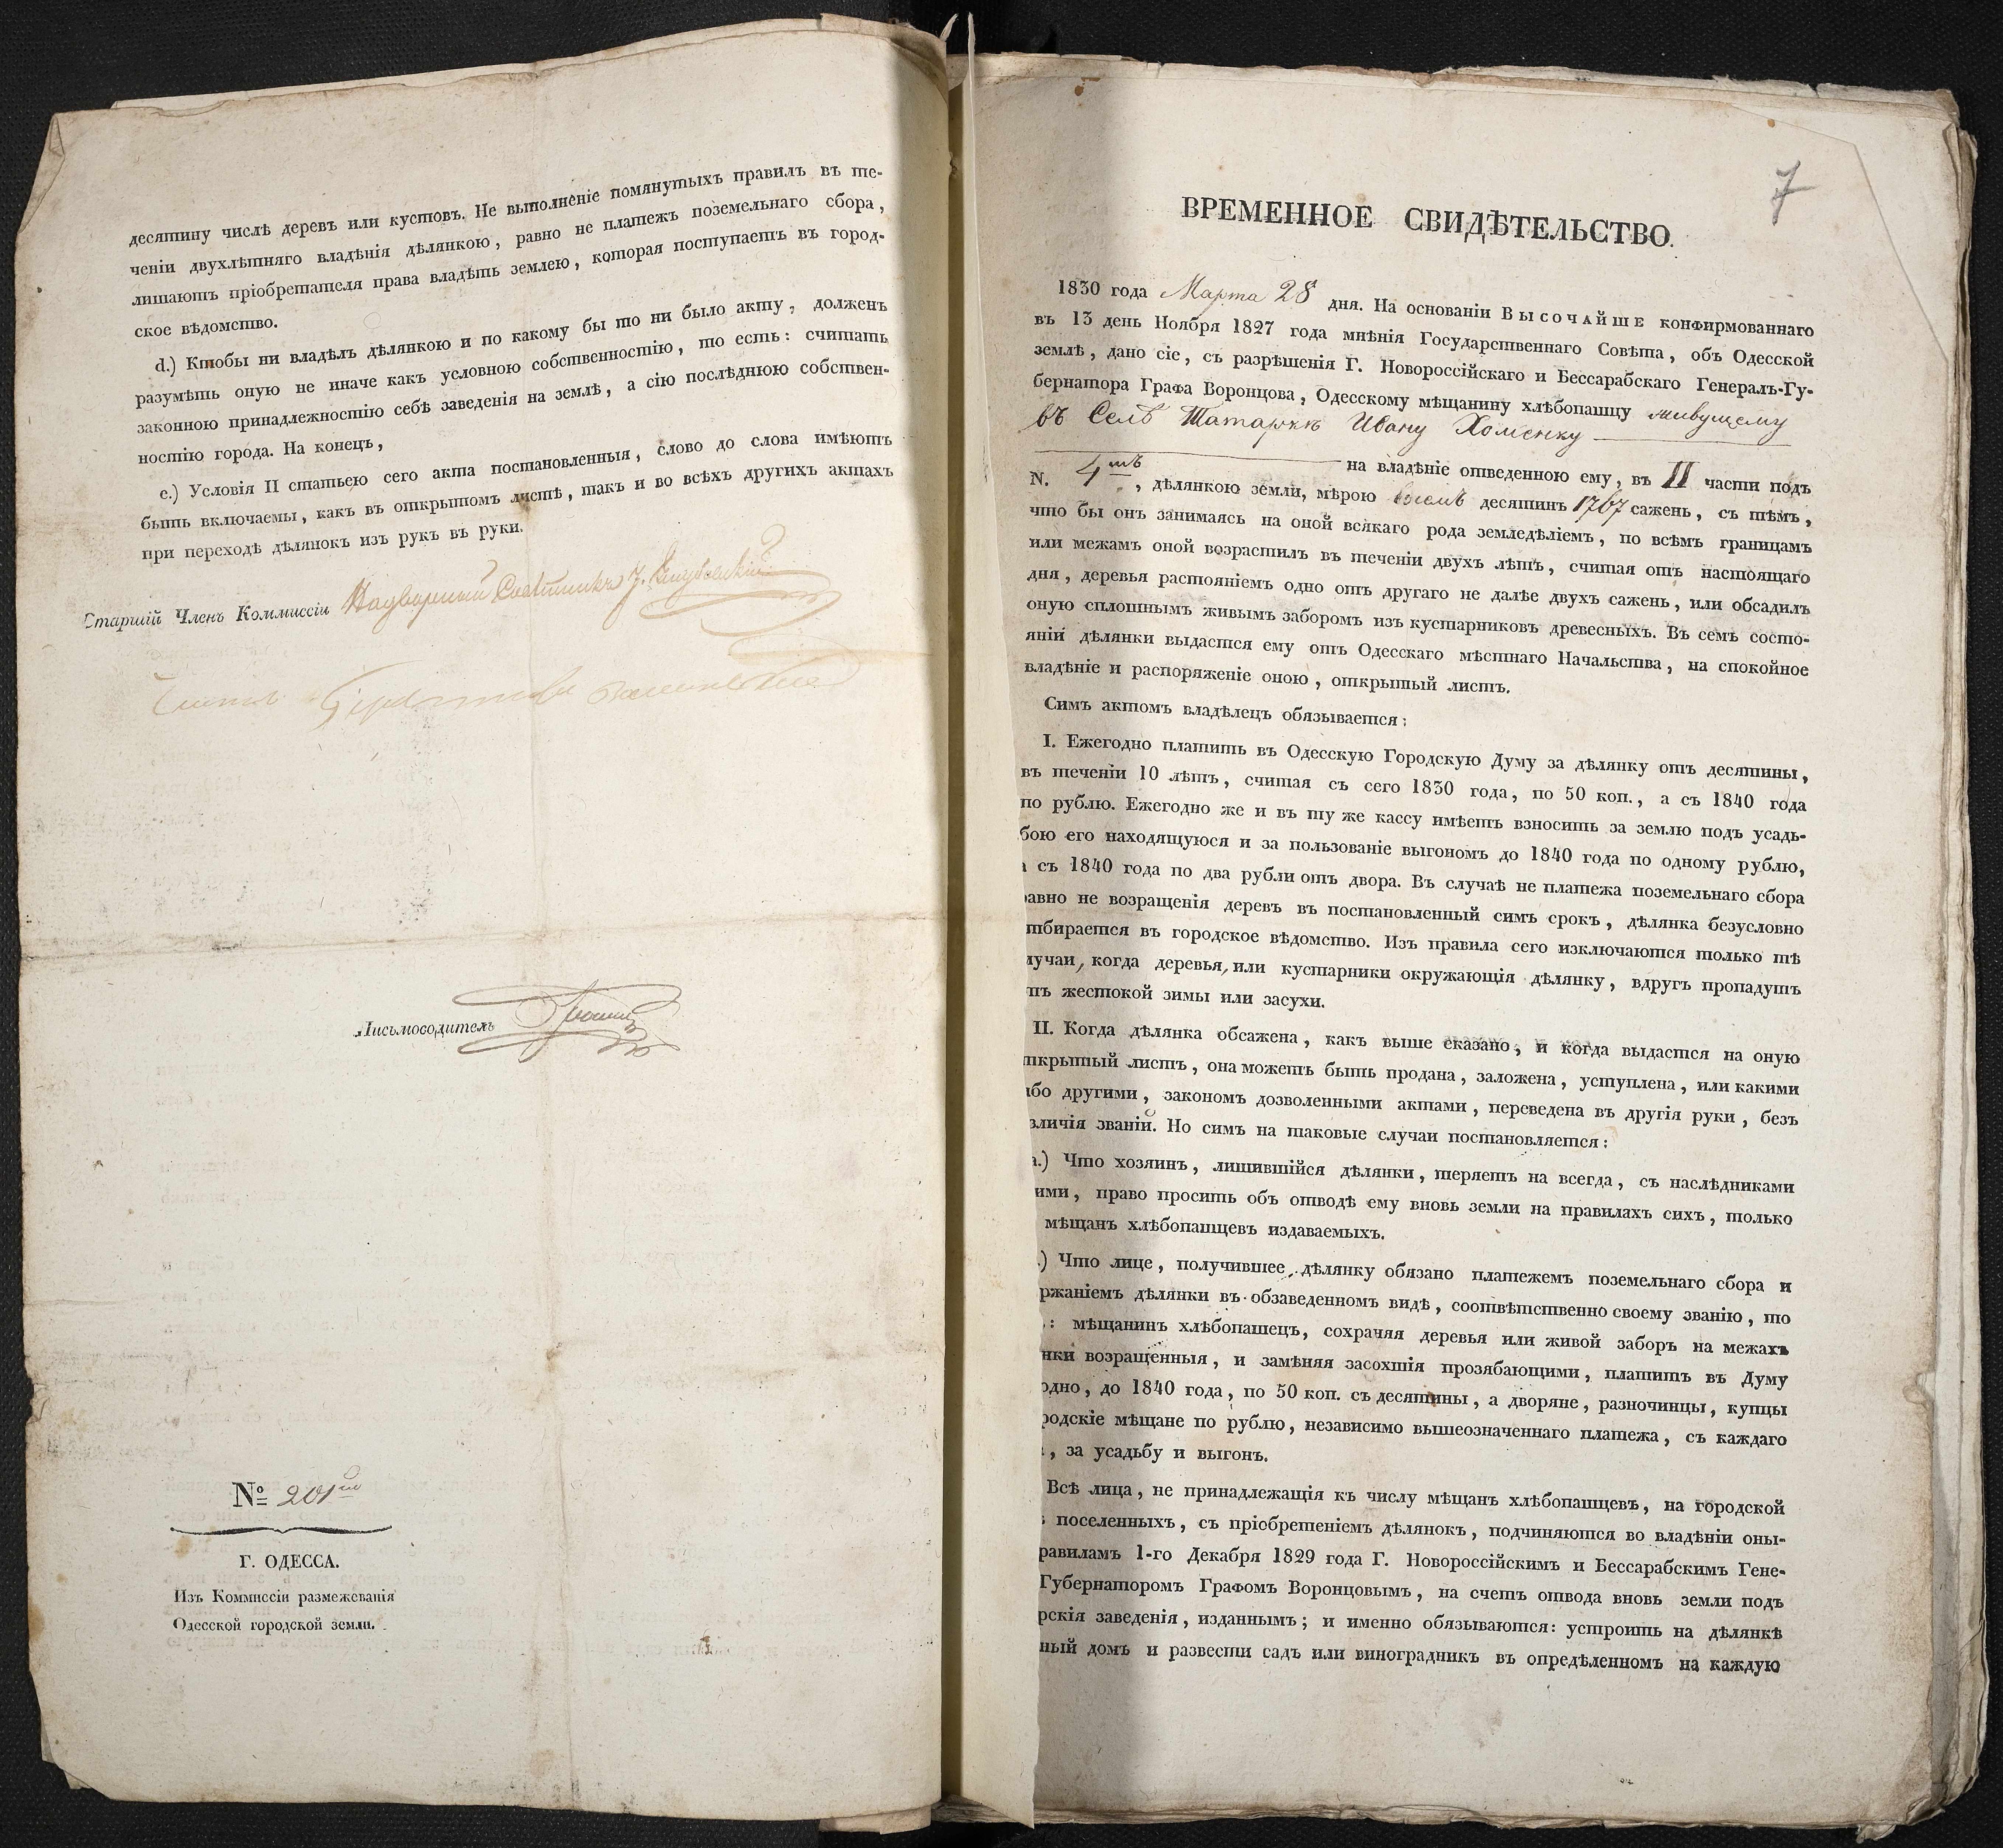 десятину числѣ деревъ или кустовъ. Не выполненіе помянутыхъ правилъ въ те-
ченіи двухлѣтняго владѣнія дѣлянкою, равно не платежъ поземельнаго сбора,
лишаютъ пріобретателя права владѣть землею, которая поступаетъ въ город-
ское вѣдомство.
d.) Ктобы ни владѣлъ дѣлянкою и по какому бы то ни было акту, долженъ
разумѣть оную не иначе какъ условною собственностію, то есть: считать
законною принадлежностію себѣ заведенія на землѣ, а сію послѣднюю собствен-
ностію города. На конецъ,
e.) Условія II статьею сего акта постановленныя, слово до слова имѣютъ
быть включаемы, какъ въ открытомъ листѣ, такъ и во всѣхъ другихъ актахъ
при переходѣ дѣлянокъ изъ рукъ въ руки.
Старшій Членъ Коммиссіи Надворный Совѣтникъ
Письмоводитель
№ 201
Г. ОДЕССА.
Изъ Коммиссіи размежеванія
Одесской городской земли.
7
ВРЕМЕННОЕ СВИДѢТЕЛЬСТВО.
1830 года Марта 28 дня. На основаніи ВЫСОЧАЙШЕ конфирмованнаго
въ 13 день Ноября 1827 года мнѣнія Государственнаго Совѣта, объ Одесской
землѣ, дано сіе, съ разрѣшенія Г. Новороссійскаго и Бессарабскаго Генералъ-Гу-
бернатора Графа Воронцова, Одесскому мѣщанину хлѣбопашцу живущему
въ Селѣ Татаркѣ Ивану Хоменку
на владѣніе отведенною ему, въ II части подъ
N. 4мъ, дѣлянкою земли, мѣрою восемь десятинъ 1767 сажень, съ тѣмъ,
что бы онъ занимаясь на оной всякаго рода земледѣліемъ, по всѣмъ границамъ
или межамъ оной возрастилъ въ теченіи двухъ лѣтъ, считая отъ настоящаго
дня, деревья растояніемъ одно отъ другаго не далѣе двухъ сажень, или обсадилъ
оную сплошнымъ живымъ заборомъ изъ кустарниковъ древесныхъ. Въ семъ состо-
яніи дѣлянки выдастся ему отъ Одесскаго мѣстнаго Начальства, на спокойное
владѣніе и распоряженіе оною, открытый листъ.
Симъ актомъ владѣлецъ обязывается:
I. Ежегодно платить въ Одесскую Городскую Думу за дѣлянку отъ десятины,
въ теченіи 10 лѣтъ, считая съ сего 1830 года, по 50 коп., а съ 1840 года
по рублю. Ежегодно же и въ ту же кассу имѣетъ взносить за землю подъ усадь-
бою его находящуюся и за пользованіе выгономъ до 1840 года по одному рублю,
а съ 1840 года по два рубли отъ двора. Въ случаѣ не платежа поземельнаго сбора
равно не возращенія деревъ въ постановленный симъ срокъ, дѣлянка безусловно
тбирается въ городское вѣдомство. Изъ правила сего изключаются только тѣ
лучаи, когда деревья, или кустарники окружающія дѣлянку, вдругъ пропадутъ
тъ жестокой зимы или засухи.
II. Когда дѣлянка обсажена, какъ выше сказано, и когда выдастся на оную
ткрытый листъ, она можетъ быть продана, заложена, уступлена, или какими
ибо другими, закономъ дозволенными актами, переведена въ другія руки, безъ
зличія званій. Но симъ на таковые случаи постановляется:
a.) Что хозяинъ, лишившійся дѣлянки, теряетъ на всегда, съ наслѣдниками
ими, право просить объ отводѣ ему вновь земли на правилахъ сихъ, только
мѣщанъ хлѣбопашцевъ издаваемыхъ.
.) Что лице, получившее дѣлянку обязано платежемъ поземельнаго сбора и
ржаніемъ дѣлянки въ обзаведенномъ видѣ, соотвѣтственно своему званію, то
: мѣщанинъ хлѣбопашецъ, сохрачяя деревья или живой заборъ на межахъ
нки возращенныя, и замѣняя засохшія прозябающими, платитъ въ Думу
одно, до 1840 года, по 50 коп. съ десятины, а дворяне, разночинцы, купцы
родскіе мѣщане по рублю, независимо вышеозначеннаго платежа, съ каждаго
, за усадьбу и выгонъ.
Всѣ лица, не принадлежащія къ числу мѣщанъ хлѣбопашцевъ, на городской
поселенныхъ, съ пріобретеніемъ дѣлянокъ, подчиняются во владѣніи оны-
равиламъ 1-го Декабря 1829 года Г. Новороссійскимъ и Бессарабскимъ Гене-
Губернаторомъ Графомъ Воронцовымъ, на счетъ отвода вновь земли подъ
рскія заведенія, изданнымъ; и именно обязываются: устроить на дѣлянкѣ
ный домъ и развести садъ или виноградникъ въ опредѣленномъ на каждую